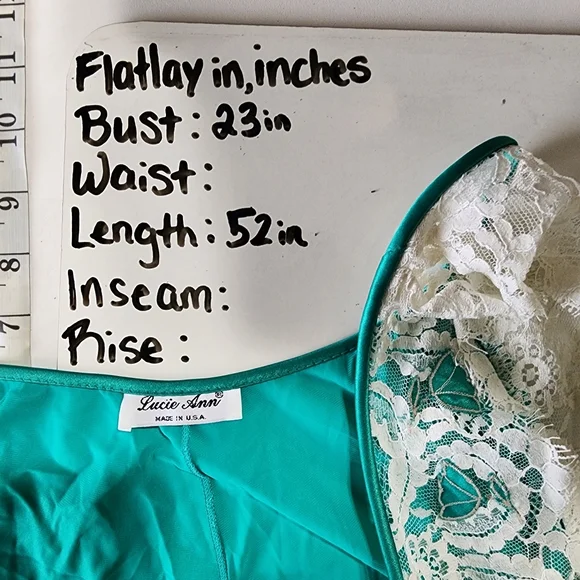 Flatlay in, inches
Bust: 23in
Waist:
Length: 52in
Inseam:
Rise:
Lucie Ann®
MADE IN U.S.A.
11
10
9
8
7